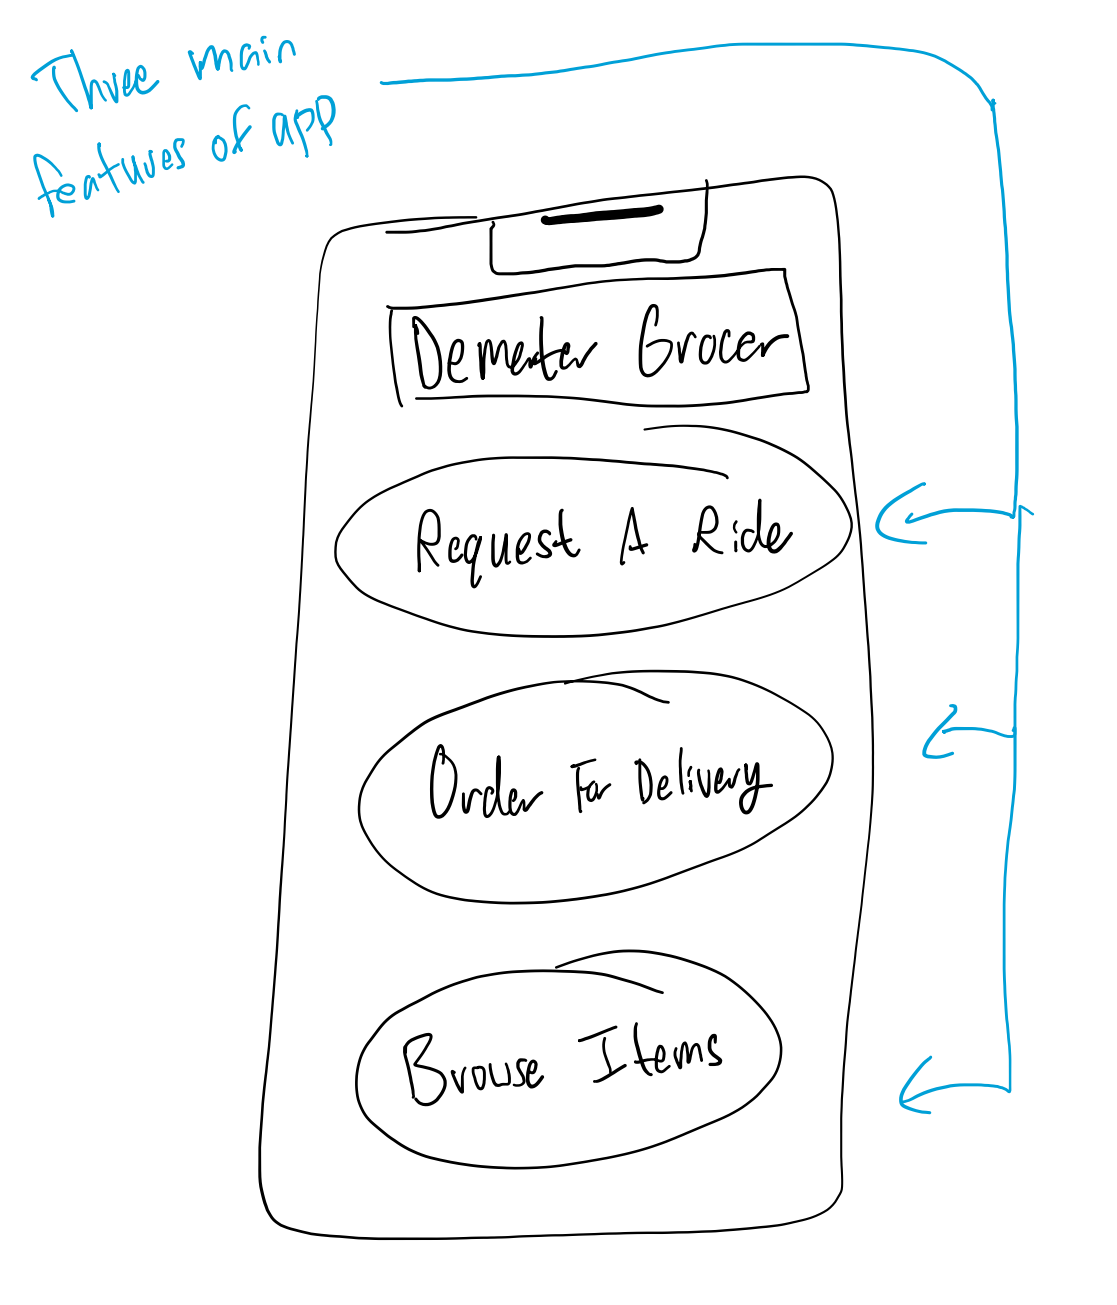 Three main
features of app
Demeter Grocer
Request A Ride
Order For Delivery
Browse Items